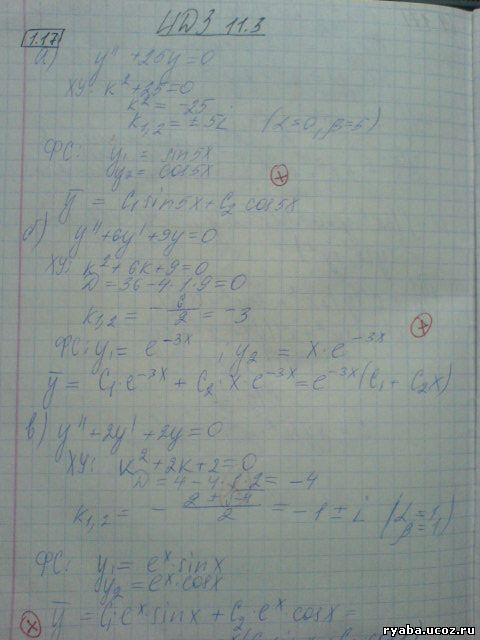 ИДЗ 11.3
1.17
а) y'' + 25y = 0
ХУ: k² + 25 = 0
k² = -25
k₁,₂ = ± 5i (α = 0, β = 5)
ФС: y₁ = sin5x
y₂ = cos5x
ȳ = C₁ sin5x + C₂ cos5x
б) y'' + 6y' + 9y = 0
ХУ: k² + 6k + 9 = 0
D = 36 - 4 · 1 · 9 = 0
k₁,₂ = - 6/2 = -3
ФС: y₁ = e^(-3x) ; y₂ = x · e^(-3x)
ȳ = C₁ · e^(-3x) + C₂ · x · e^(-3x) = e^(-3x) (C₁ + C₂x)
в) y'' + 2y' + 2y = 0
ХУ: k² + 2k + 2 = 0
D = 4 - 4 · 1 · 2 = -4
k₁,₂ = - (2 ± √-4)/2 = -1 ± i (α = 1, β = 1)
ФС: y₁ = e^x · sinx
y₂ = e^x · cosx
ȳ = C₁ e^x · sinx + C₂ · e^x cosx =
ryaba.ucoz.ru